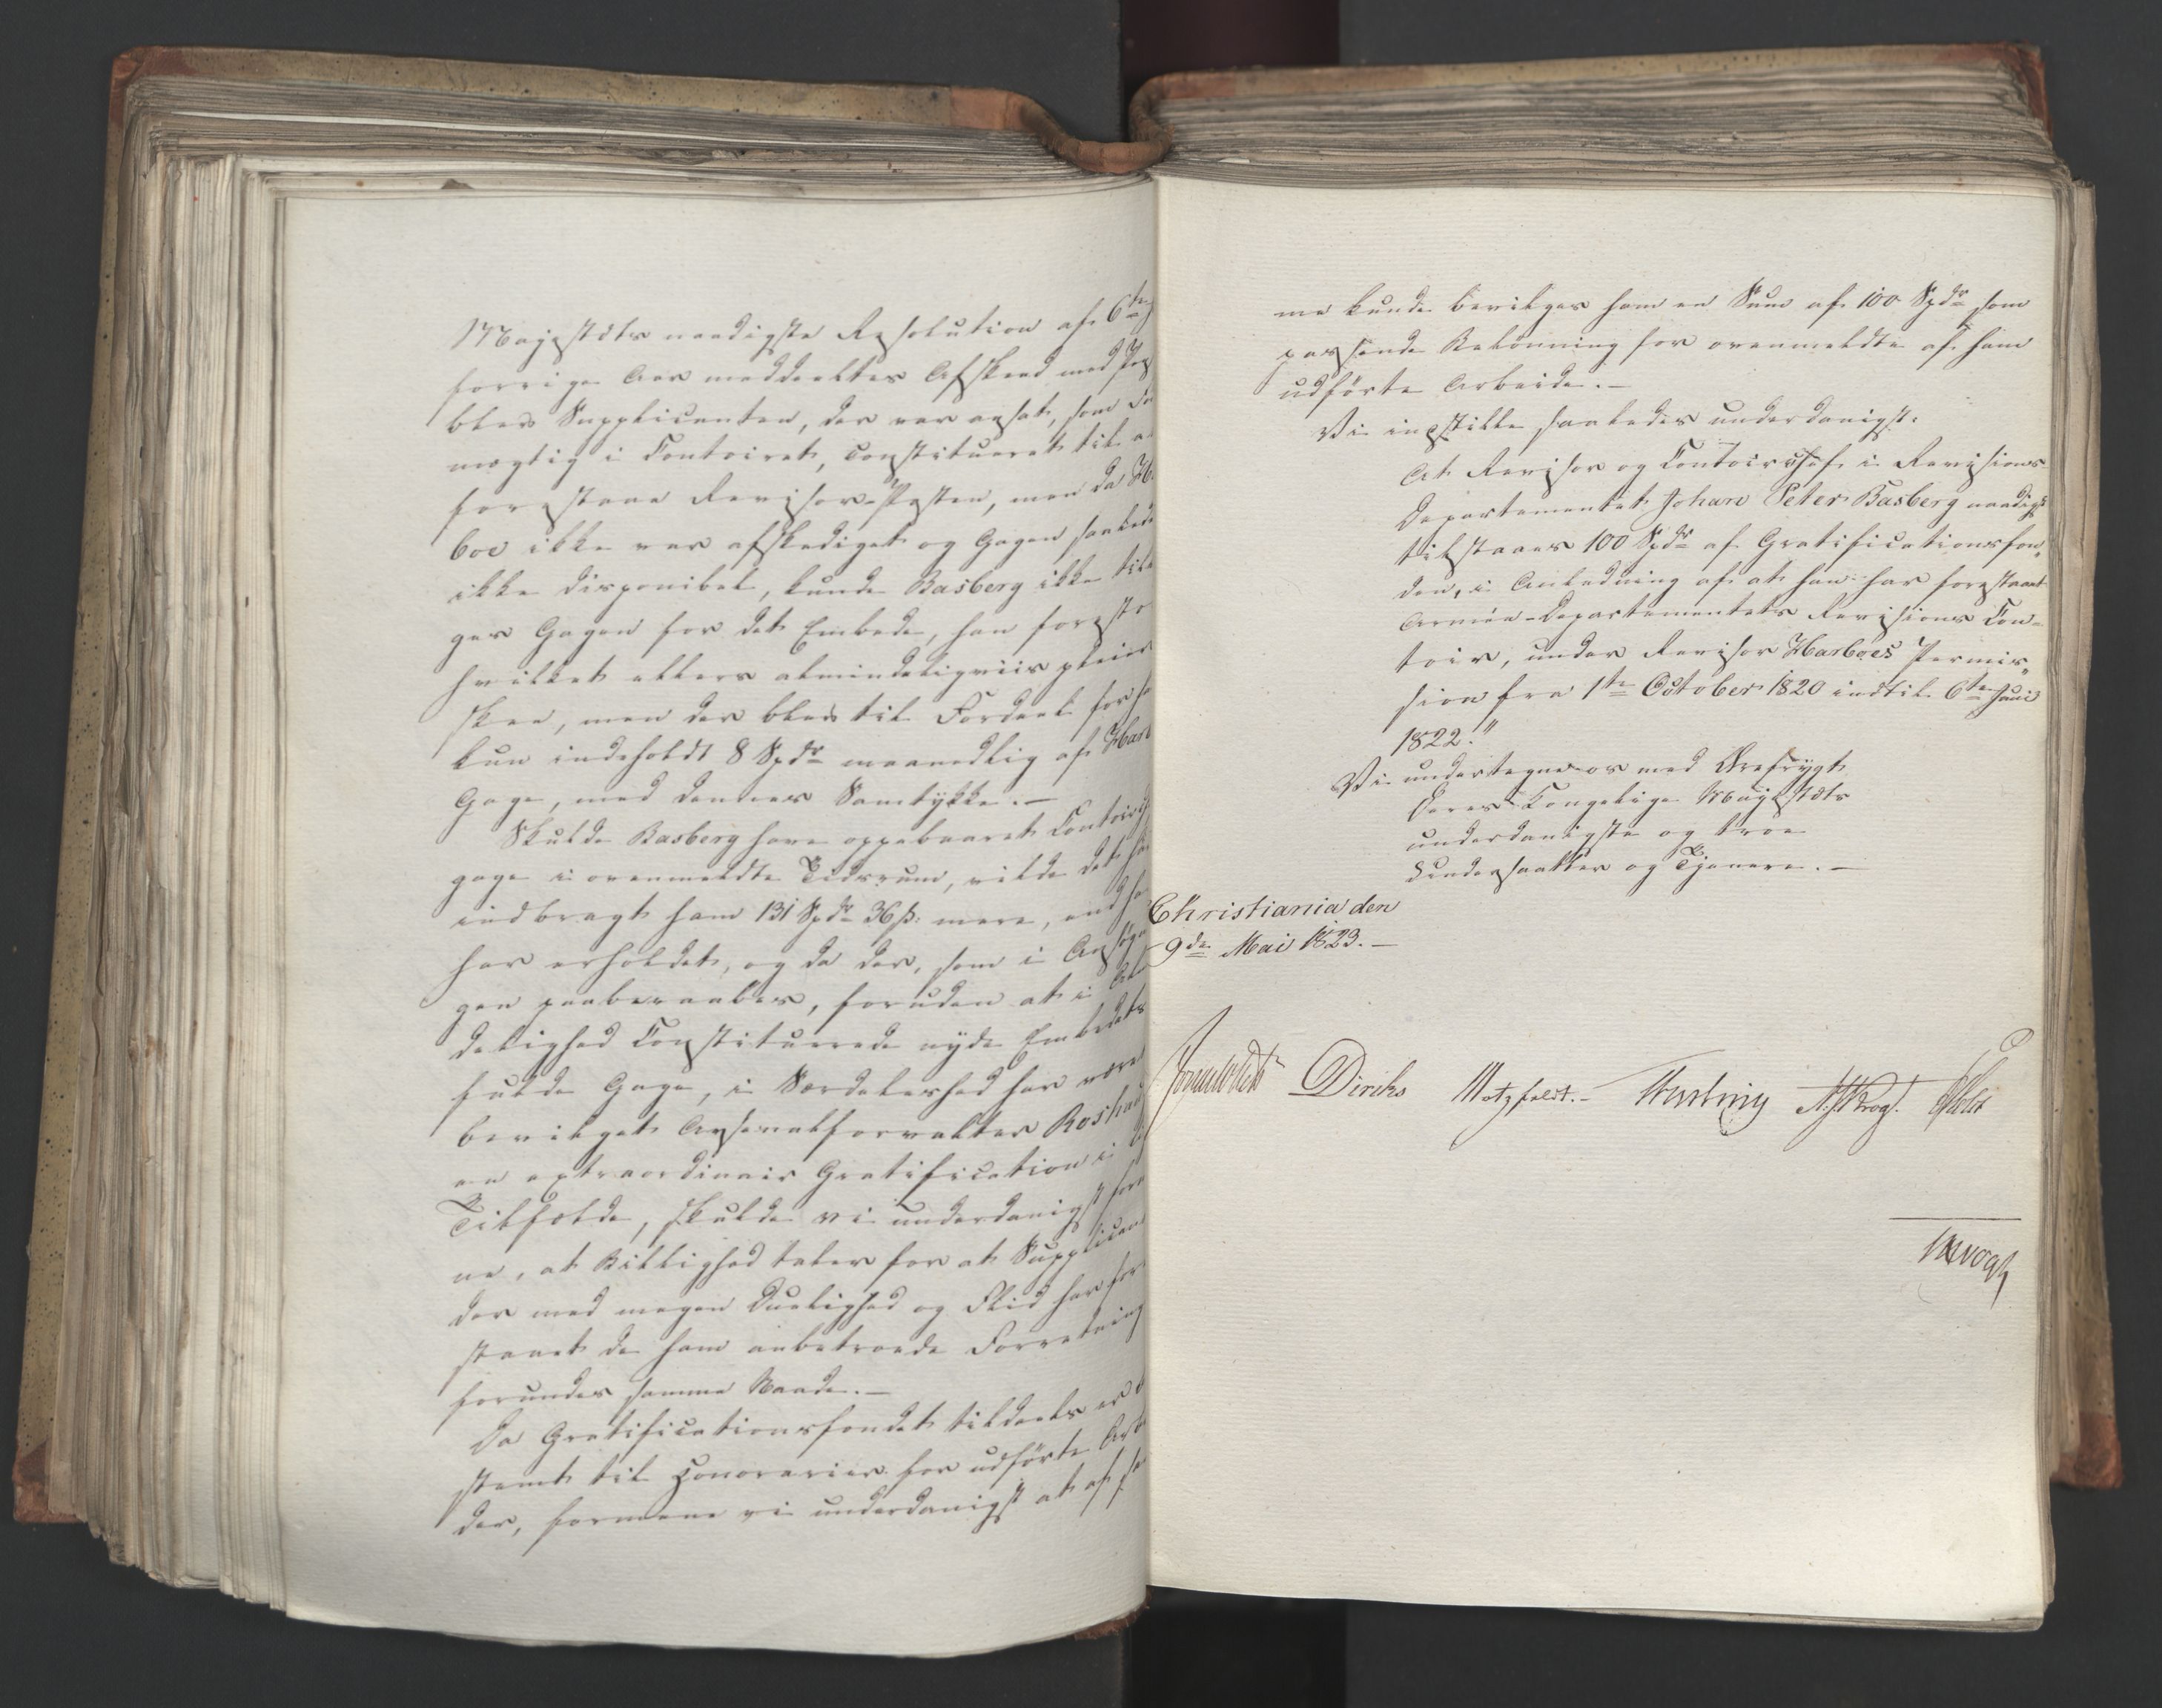 Majestæts naadigste Resolution af 6te
forrige Aar meddeeltes Afskeed med Pen
blev Supplicanten, der var ansat, som Fuld
mægtig i Contoiret, constitueret til at
forestaae Revisor-Posten, men da Har
boe ikke var afskediget og Gagen saaledes
ikke disponibel, kunde Basberg ikke tillæg
ges Gagen for det Embede, han foresto
hvilket ellers almindeligviis pleier
skee, men der blev til Fordeel for ham
kun indeholdt 8 Spdr maanedlig af Har
Gage, med dennes Samtykke.—
Skulde Basberg have oppebaaret Contoirs
gage i ovenmeldte Tidsrum, vilde det have
indbragt ham 131 Spdr 36 ß: mere, end han
har erholdet, og da der, som i Ansøgnin
gen paaberaabes, foruden at i Almin
delighed Constituerede nyde Embedets
fulde Gage, i Særdeleshed har været
bevilget Arsenalforvalter Roshau
en extraordinair Gratification i
Tilfælde, skulde vi underdanigst forme
ne, at Billighed taler for at Supplicanten
der med megen Duelighed og Flid har fore
staaet de ham anbetroede Forretninger
forundes samme Naade.—
Da Gratificationsfondet tildeels er be
stemt til Honorarier for udførte Arbei
der, formene vi underdanigst at af sam
me kunde bevilges ham en Sum af 100 Spdr som
passende Belønning for ovenmeldte af ham
udførte Arbeide.—
Vi indstille saaledes underdanigst:
At Revisor og Contoirchef i Revisions
Departementet Johan Peter Basberg naadigst
tilstaaes 100 Spdr af Gratificationsfon„
den, i Anledning af at han har forestaaet
Armée-Departementets Revisions Con-
toir, under Revisor Harboes Permis„
sion fra 1te October 1820 indtil 6te Juni
1822."
Vi undertegne os med Ærefrygt
Deres Kongelige Majestæts
underdanigste og troe
Undersaatter og Tjenere.—
Christiania den
9de Mai 1823.—
Sommerhielm Diriks Motzfeldt.— Treschow Krog. Holst
Vogt